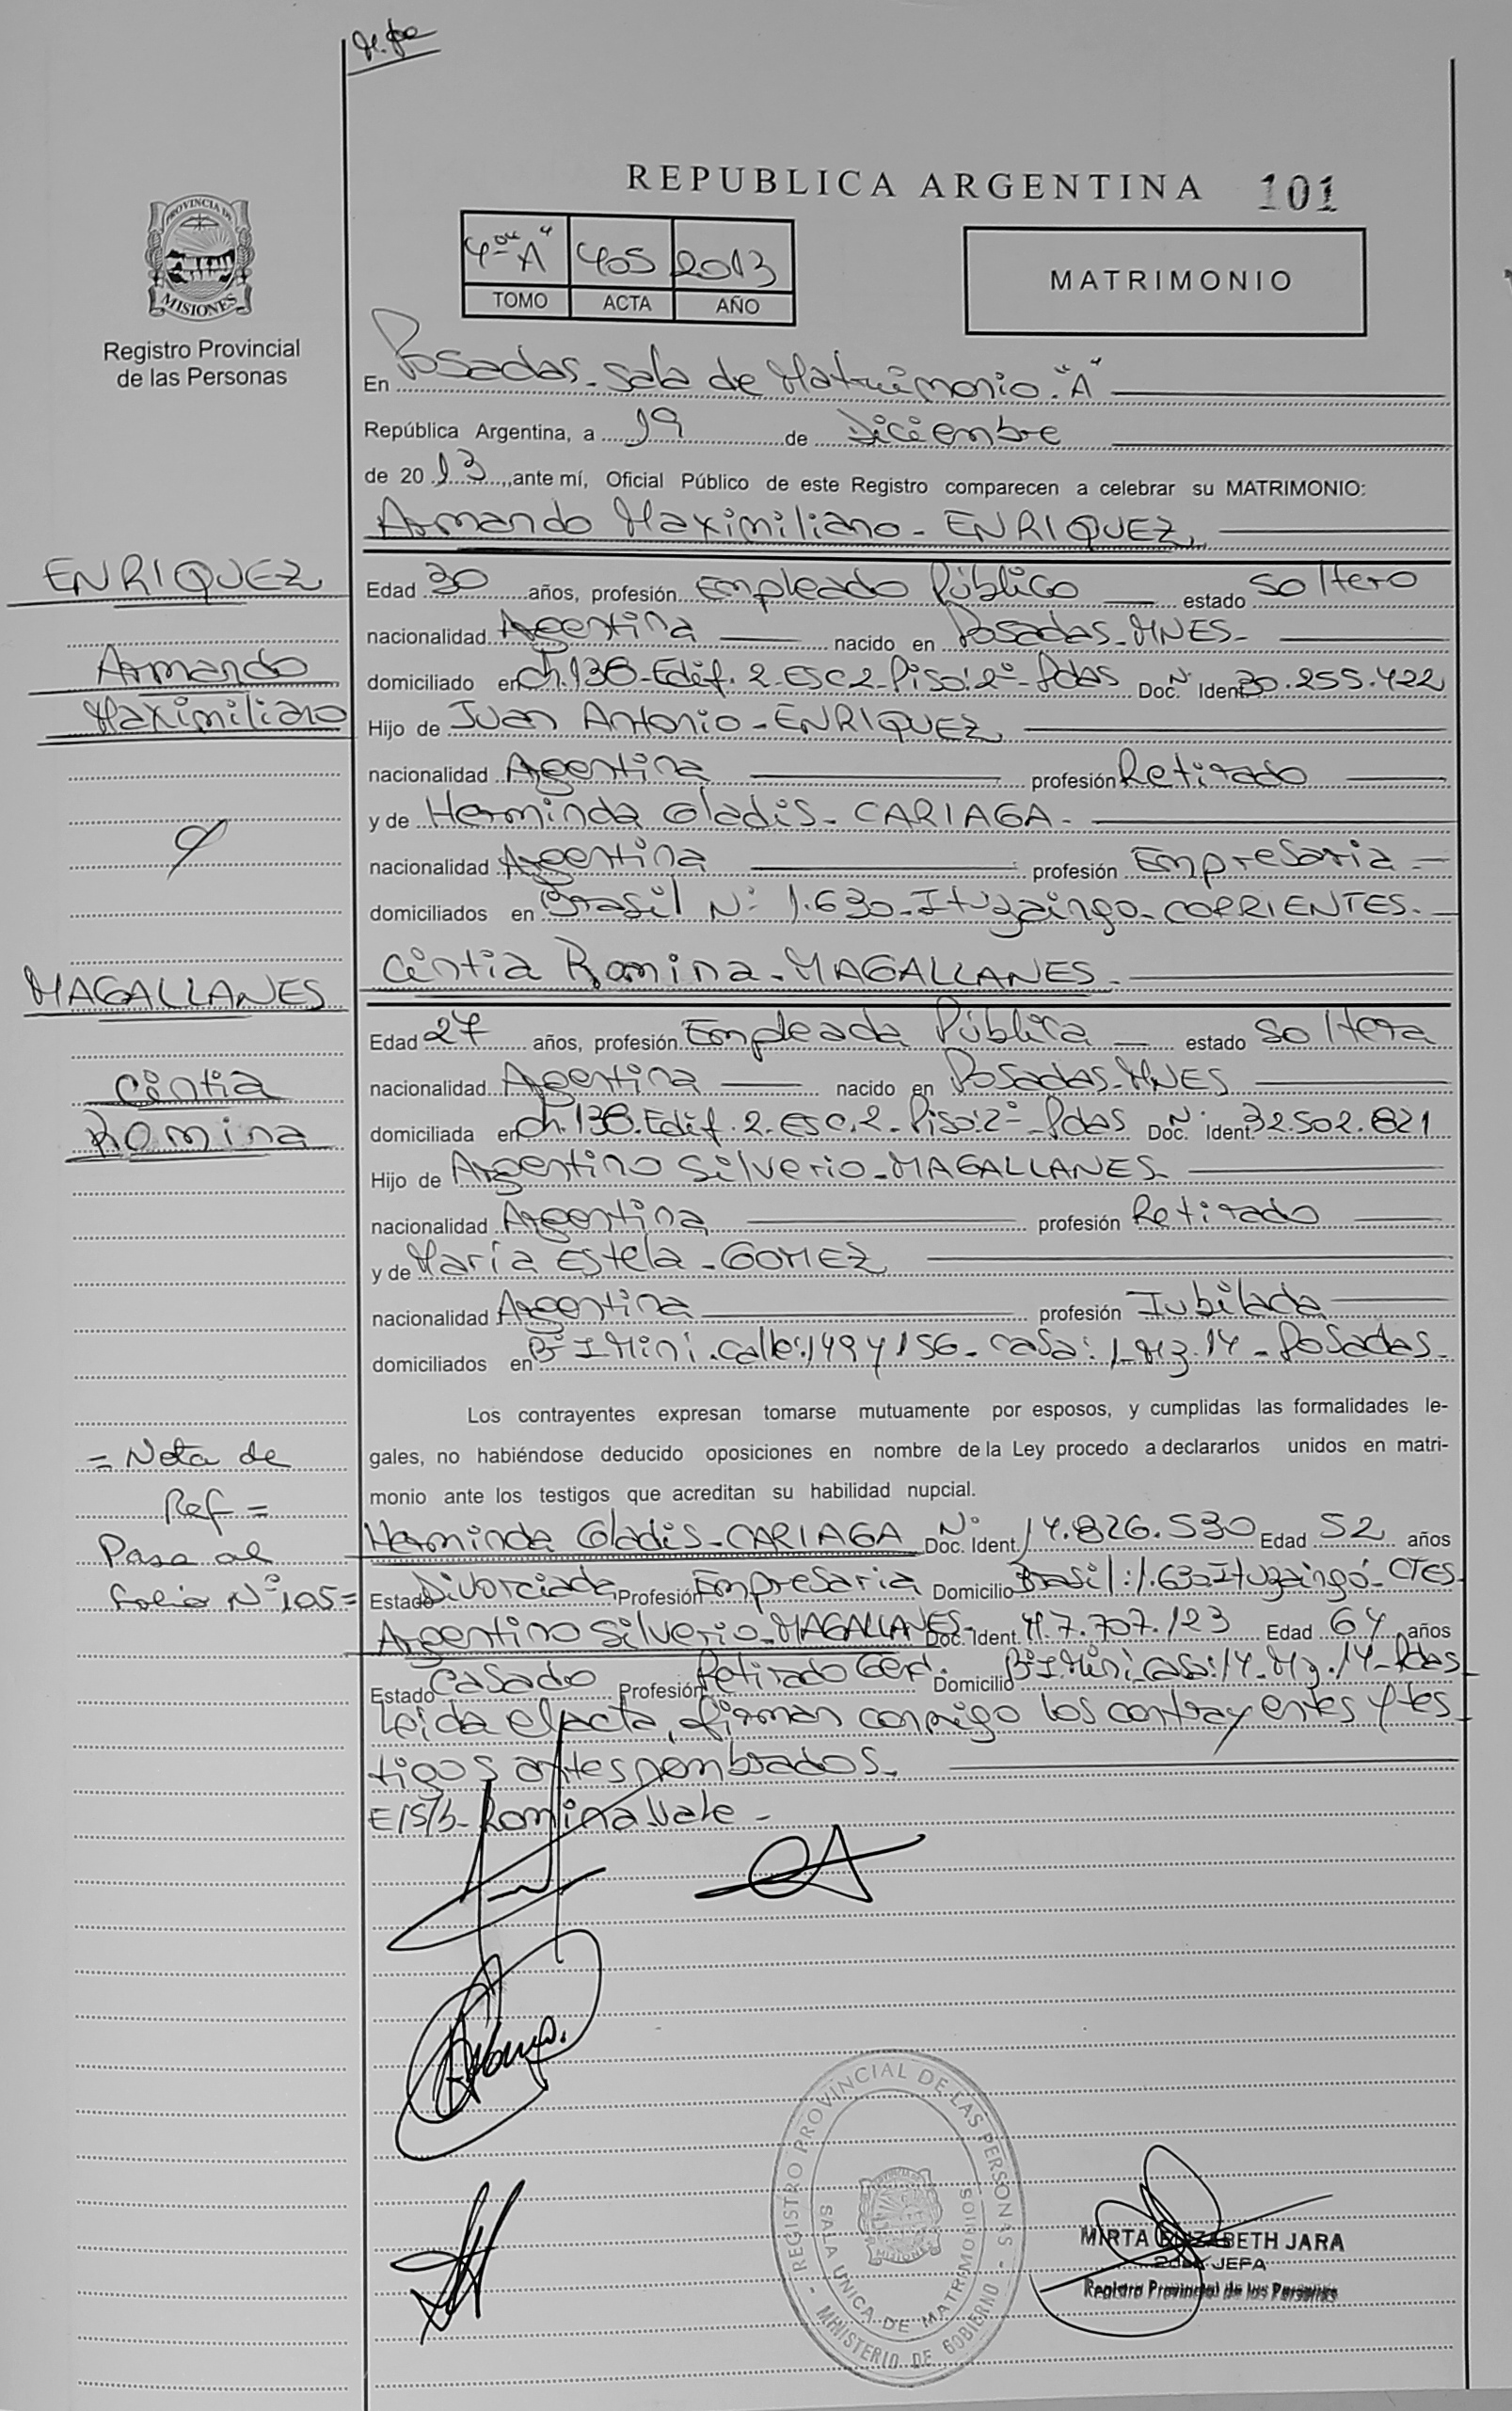 REPUBLICA ARGENTINA 101
PROVINCIA DE
MISIONES
Registro Provincial
de las Personas
4to "A" 405 2013
TOMO ACTA AÑO
MATRIMONIO
En Posadas - Sala de Matrimonio "A"
República Argentina, a 19 de Diciembre
de 2013, ante mí, Oficial Público de este Registro comparecen a celebrar su MATRIMONIO:
Armando Maximiliano - ENRIQUEZ
ENRIQUEZ
Armando
Maximiliano
Edad 30 años, profesión Empleado Público estado Soltero
nacionalidad Argentina nacido en Posadas - MNES -
domiciliado en Ch. 138 - Edif. 2 - ESC 2 - Piso: 2º - Pdas Doc. Nº Ident. 30.255.422
Hijo de Juan Antonio - ENRIQUEZ
nacionalidad Argentina profesión Retirado
y de Herminda Gladis - CARIAGA -
nacionalidad Argentina profesión Empresaria -
domiciliados en Brasil Nº 1.630 - Ituzaingo - CORRIENTES -
Cintia Romina - MAGALLANES -
MAGALLANES
Cintia
Romina
Edad 27 años, profesión Empleada Pública estado Soltera
nacionalidad Argentina nacido en Posadas - MNES
domiciliada en Ch. 138 - Edif. 2 - ESC. 2 - Piso: 2º - Pdas Doc. Nº Ident. 32.502.821
Hijo de Argentino Silverio - MAGALLANES -
nacionalidad Argentina profesión Retirado
y de María Estela - GOMEZ
nacionalidad Argentina profesión Jubilada
domiciliados en Bº I Mini - Calle: 149 y 156 - casa: 1 - Mz. 14 - Posadas -
Los contrayentes expresan tomarse mutuamente por esposos, y cumplidas las formalidades le-
gales, no habiéndose deducido oposiciones en nombre de la Ley procedo a declararlos unidos en matri-
monio ante los testigos que acreditan su habilidad nupcial.
= Nota de
Ref =
Pasa al
folio Nº 105 =
Herminda Gladis - CARIAGA Doc. Nº Ident. 14.826.530 Edad 52 años
Estado Divorciada Profesión Empresaria Domicilio Brasil: 1.630 Ituzaingó - CTES -
Argentino Silverio - MAGALLANES - Doc. Ident. M. 7.707.123 Edad 64 años
Estado Casado Profesión Retirado Domicilio Bº I Mini Casa: 14 - Mz. 14 - Pdas
Leída el acta, firman conmigo los contrayentes y tes
tigos antes nombrados -
E/S/b - Romina Vale -
REGISTRO PROVINCIAL DE LAS PERSONAS - MINISTERIO DE GOBIERNO
SALA UNICA DE MATRIMONIOS
MISIONES
MIRTA ELIZABETH JARA
2da JEFA
Registro Provincial de las Personas